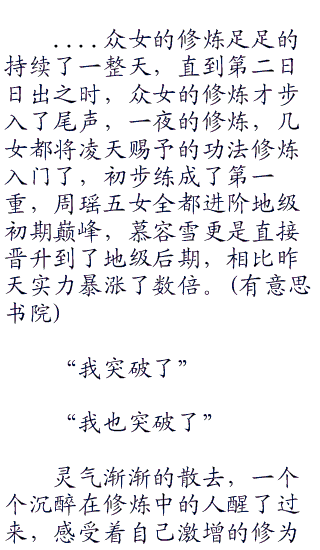 ....众女的修炼足足的
持续了一整天，直到第二日
日出之时，众女的修炼才步
入了尾声，一夜的修炼，几
女都将凌天赐予的功法修炼
入门了，初步练成了第一
重，周瑶五女全都进阶地级
初期巅峰，慕容雪更是直接
晋升到了地级后期，相比昨
天实力暴涨了数倍。(有意思
书院)
“我突破了”
“我也突破了”
灵气渐渐的散去，一个
个沉醉在修炼中的人醒了过
来，感受着自己激增的修为